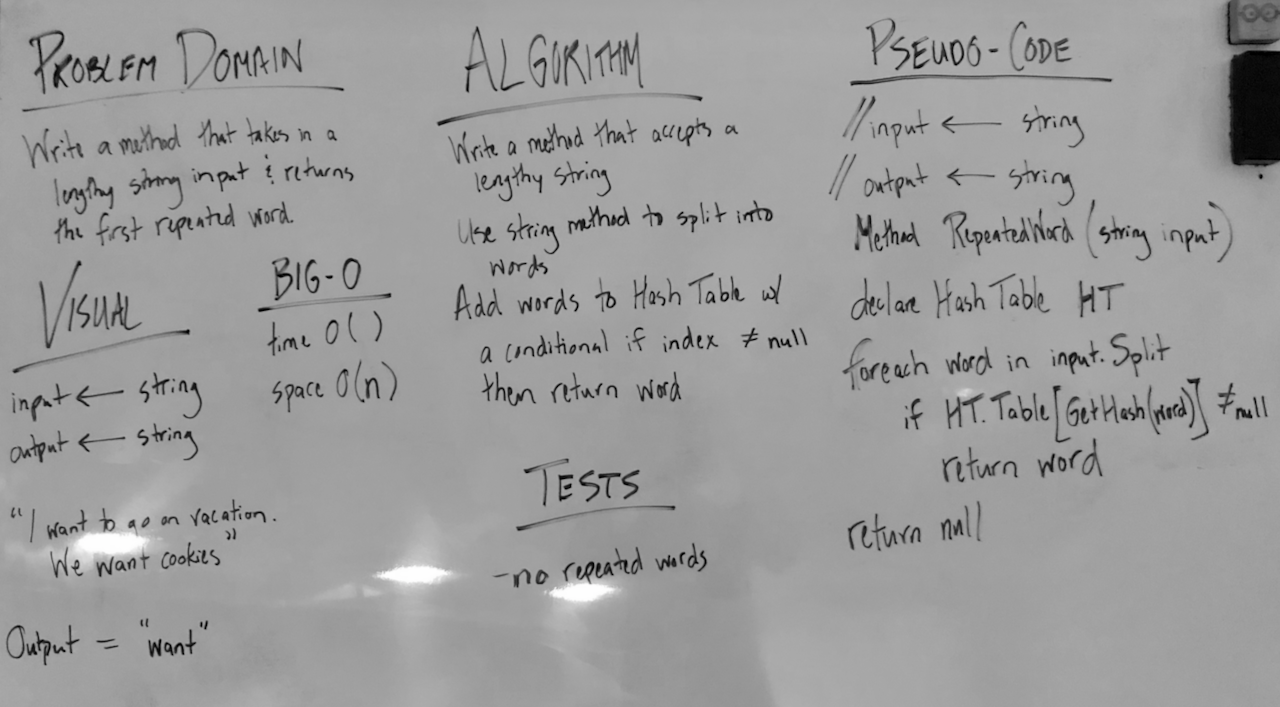 PROBLEM DOMAIN
Write a method that takes in a
lengthy string input & returns
the first repeated word.
VISUAL
input ← string
output ← string
"I want to go on vacation.
We want cookies"
Output = "want"
BIG-O
time O( )
space O(n)
ALGORITHM
Write a method that accepts a
lengthy string
Use string method to split into
words
Add words to Hash Table w/
a conditional if index ≠ null
then return word
TESTS
-no repeated words
PSEUDO-CODE
//input ← string
// output ← string
Method RepeatedWord (string input)
declare Hash Table HT
foreach word in input.Split
if HT.Table[GetHash(word)] ≠ null
return word
return null